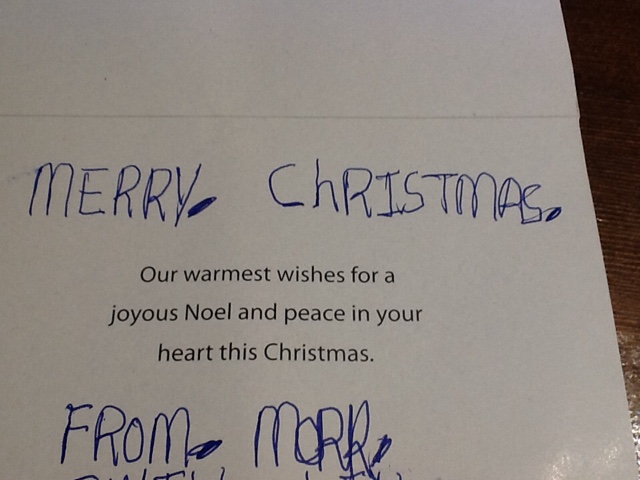 MERRY. ChRISTMAS.
Our warmest wishes for a
joyous Noel and peace in your
heart this Christmas.
FROM. MORR.